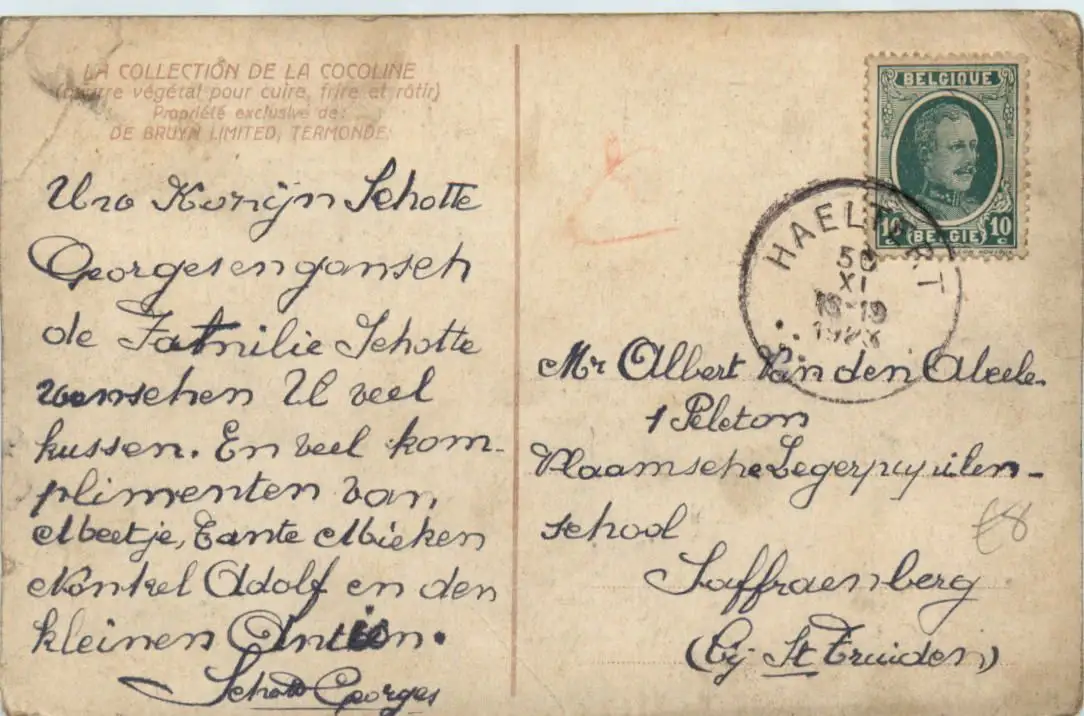 LA COLLECTION DE LA COCOLINE
(beurre végétal pour cuire, frire et rôtir)
Propriété exclusive de:
DE BRUYN LIMITED, TERMONDE.
Uw Kozijn Schotte
Georges en gansch
de Familie Schotte
wenschen U veel
kussen. En veel kom-
plimenten van,
Meetje, Tante Mieken
Nonkel Adolf en den
kleinen
Schotte Georges
BELGIQUE
10 c 10 c
(BELGIË)
HAELTERT
XI
18-19
Mr Albert Van den Abeele.
1 Peleton
Vlaamsche Legerpupilen-
school
Saffraenberg
(bij St Truiden)
£8